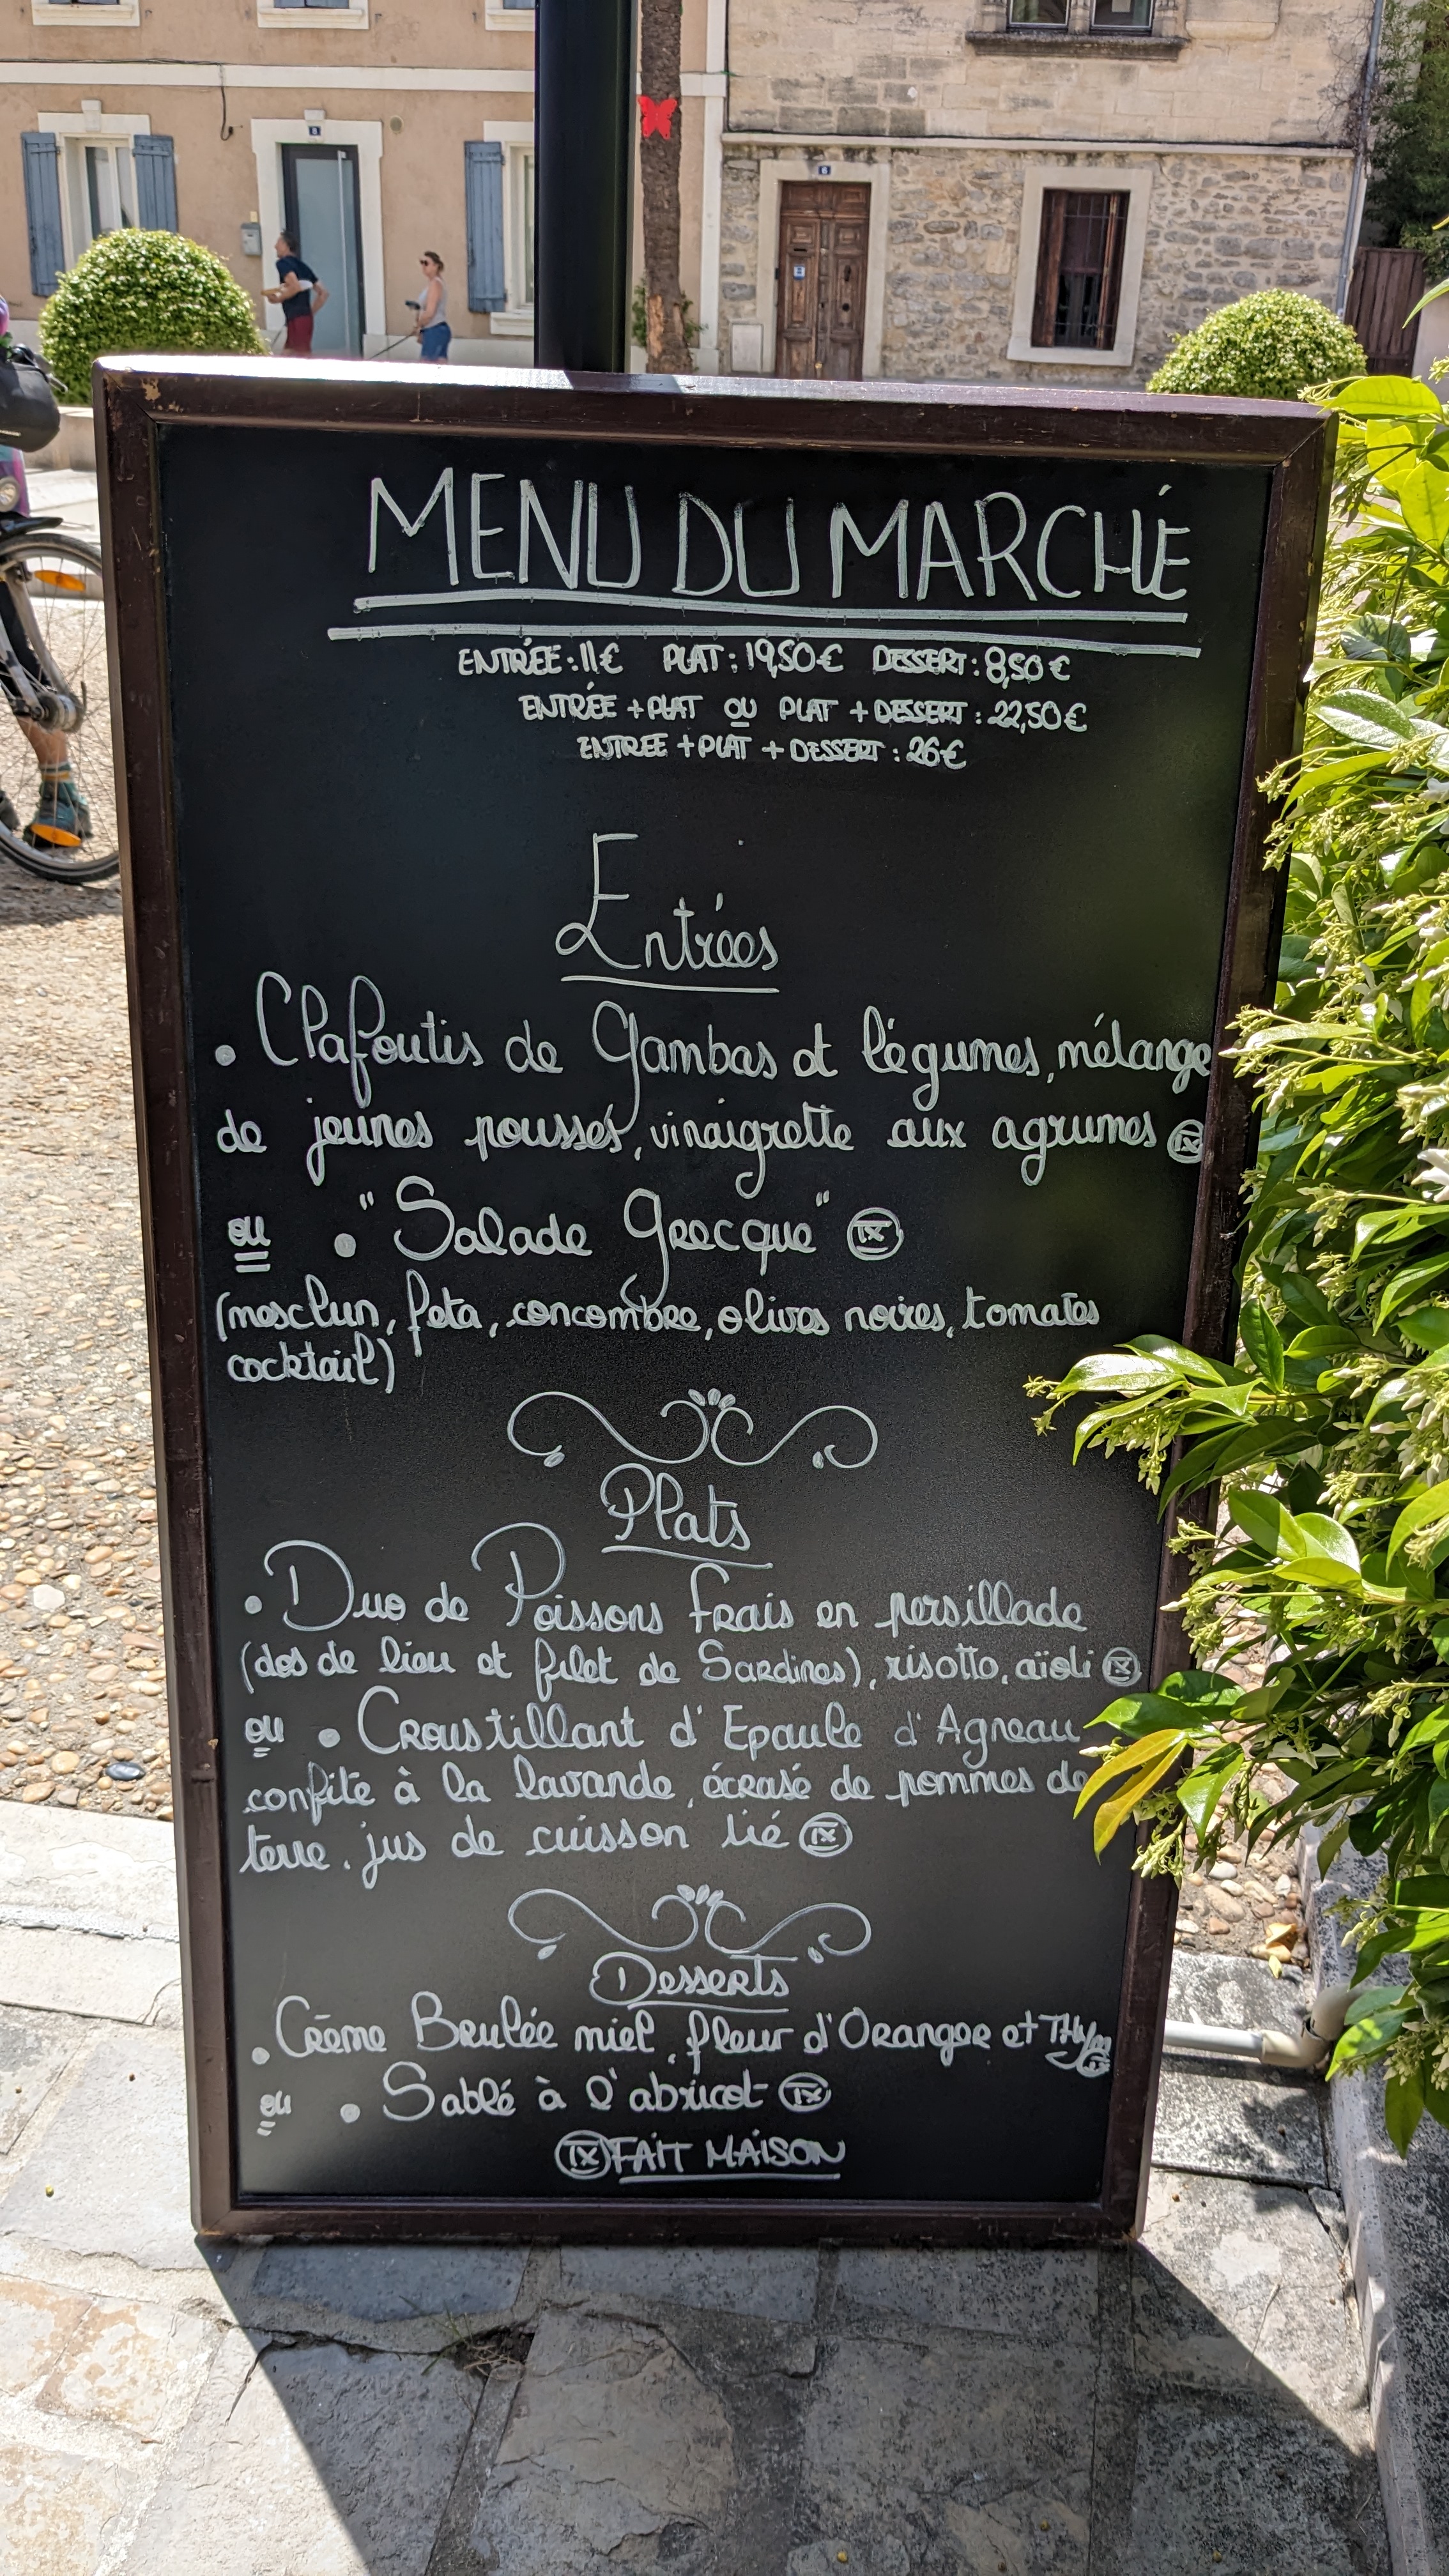 MENU DU MARCHÉ
ENTRÉE : 11€ PLAT : 19,50€ DESSERT : 8,50€
ENTRÉE + PLAT OU PLAT + DESSERT : 22,50€
ENTREE + PLAT + DESSERT : 26€
Entrées
• Clafoutis de Gambas et légumes, mélange
de jeunes poussés, vinaigrette aux agrumes IX
ou • "Salade Grecque" IX
(mesclun, feta, concombre, olives noires, tomates
cocktail)
Plats
• Duo de Poissons frais en persillade
(dos de lieu et filet de Sardines), risotto, aïoli IX
ou • Croustillant d'Epaule d'Agneau
confite à la lavande, écrasé de pommes de
terre, jus de cuisson lié IX
Desserts
• Crème Brulée miel, fleur d'Oranger et Thym IX
ou • Sablé à l'abricot IX
IX FAIT MAISON